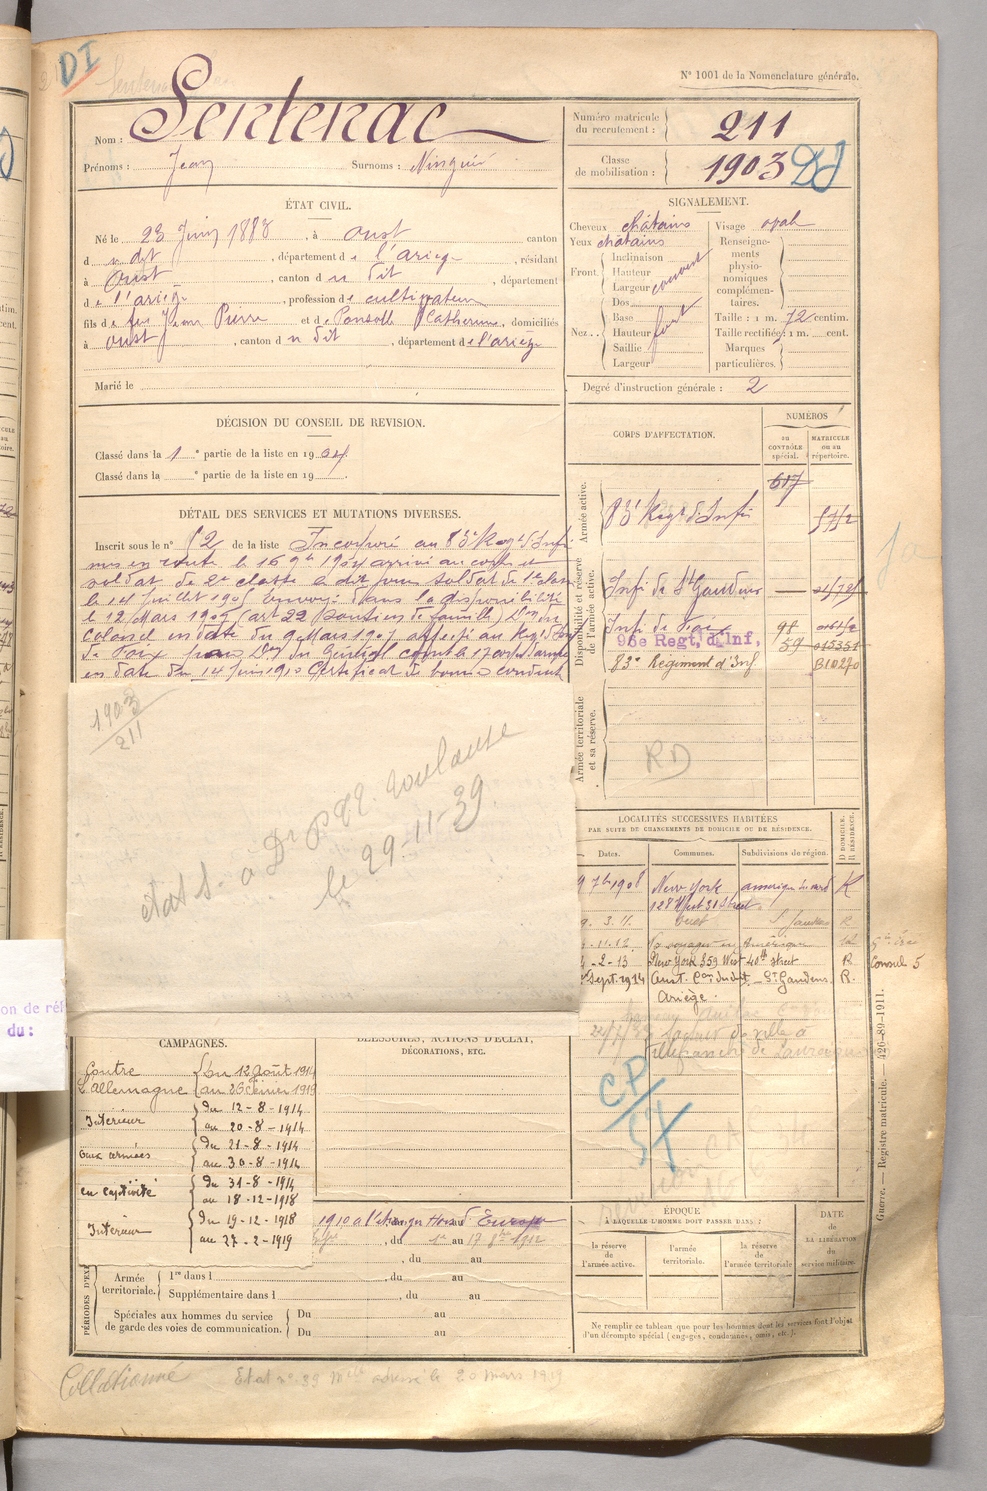 DI
N° 1001 de la Nomenclature générale.
Nom : Sentenac
Prénoms : Jean Surnoms : Ninguié
Numéro matricule du recrutement : 211
Classe de mobilisation : 1903
ÉTAT CIVIL.
Né le 23 Juin 1883, à Oust canton
d u dit, département de l'ariège, résidant
à Oust, canton d u dit, département
de l'ariège, profession de cultivateur
fils de feu Jean Pierre et de Ponsolle Catherine, domiciliés
à oust, canton d u dit, département de l'ariège
Marié le
SIGNALEMENT.
Cheveux châtains
Yeux châtains
Front. Inclinaison
Hauteur
Largeur couvert
Nez. Dos
Base
Hauteur fort
Saillie
Largeur
Visage oval
Renseignements physionomiques complémentaires.
Taille : 1 m. 72 centim.
Taille rectifiée : 1 m. cent.
Marques particulières.
Degré d'instruction générale : 2
DÉCISION DU CONSEIL DE REVISION.
Classé dans la 1e partie de la liste en 1904
Classé dans la e partie de la liste en 19
DÉTAIL DES SERVICES ET MUTATIONS DIVERSES.
Inscrit sous le n° 82 de la liste Incorporé au 83e Regt d'Infie
mis en route le 16 9bre 1904 arrivé au corps et
soldat de 2e classe le dit jour soldat de 1e classe
le 14 Juillet 1905 Envoyé dans la disponibilité
le 12 Mars 1907 (art 22 soutiens de famille) Don du
Colonel en date du 9 Mars 1907 affecté au Regt d'Inf
de Foix par Don du Général comt le 17e corps d'armée
en date du 14 Juin 1910 Certificat de bonne conduite
CORPS D'AFFECTATION.
NUMÉROS
au CONTRÔLE spécial.
MATRICULE ou au répertoire.
Armée active.
617
83e Regt d'Infie
5772
Disponibilité et réserve de l'armée active.
Infie de St Gaudens
Infie de Foix 98
96e Regt, d'Inf, 59 015351
83e Régiment d'Inf B10270
Armée territoriale et sa réserve.
RD
1903
211
état S. à Dr P. Toulouse
le 29-11-39
LOCALITÉS SUCCESSIVES HABITÉES
PAR SUITE DE CHANGEMENTS DE DOMICILE OU DE RÉSIDENCE.
Dates. Communes. Subdivisions de région. D DOMICILE. R RÉSIDENCE.
9 7bre 1908 New York amerique du nord R
128 West 31 Street
9. 3. 11. Oust St Gaudens R
-11-12. Va voyager en Amérique
4-2-13 New York 359 West 40th street R Consul 5
Sept. 1914 Oust. Con dudit - St Gaudens. R.
Ariège.
Villefranche de Lauragais
CP
CAMPAGNES.
Contre l'Allemagne
Du 12 Août 1914
au 26 Février 1919
Intérieur
du 12-8-1914
au 20-8-1914
aux armées
du 21-8-1914
au 30-8-1914
en captivité
du 31-8-1914
au 18-12-1918
Intérieur
du 19-12-1918
au 27-2-1919
BLESSURES, ACTIONS D'ÉCLAT,
DÉCORATIONS, ETC.
1910 a l'étranger Hors d'Europe
, du 1er au 17 8bre 1912
, du au
PÉRIODES D'EX
Armée territoriale.
1re dans l , du au
Supplémentaire dans l , du au
Spéciales aux hommes du service de garde des voies de communication.
Du au
Du au
ÉPOQUE
À LAQUELLE L'HOMME DOIT PASSER DANS :
la réserve de l'armée active.
l'armée territoriale.
la réserve de l'armée territoriale
DATE de LA LIBÉRATION du service militaire.
Ne remplir ce tableau que pour les hommes dont les services font l'objet
d'un décompte spécial (engagés, condamnés, omis, etc.).
Guerre. — Registre matricule. — 426-89-1911.
on de réf
du :
Collationné
Etat n° 39 Mle adressé le 20 Mars 1919